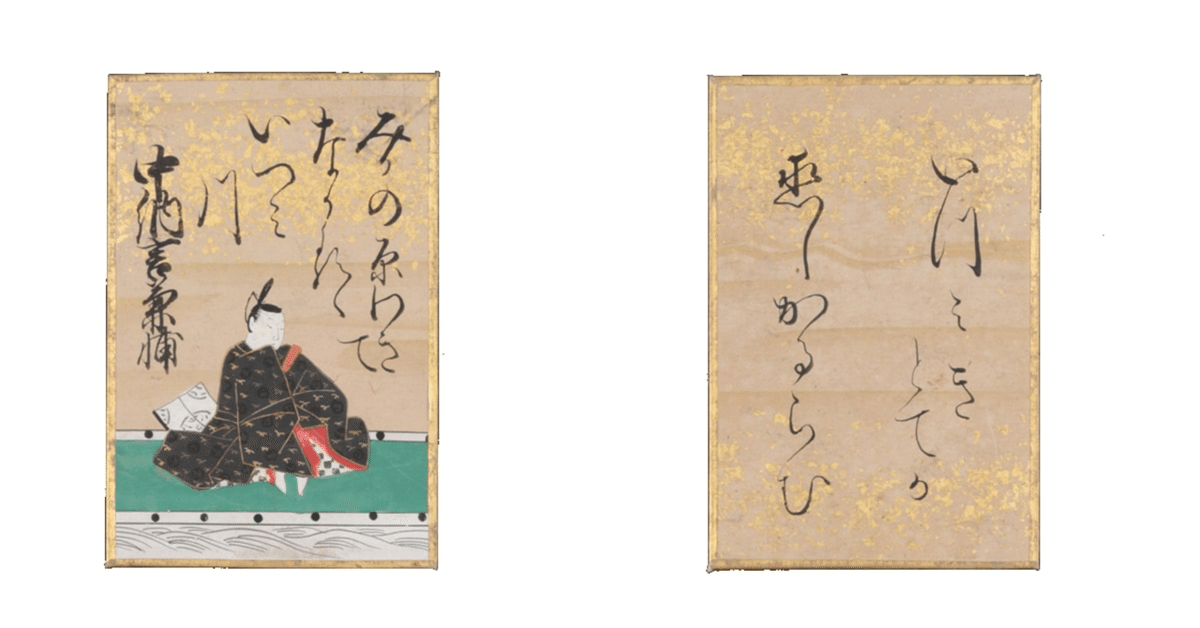 みかの原わき
て
なかるゝ
いつみ
川
中納言兼輔
いつみき
とてか
恋しかるらむ